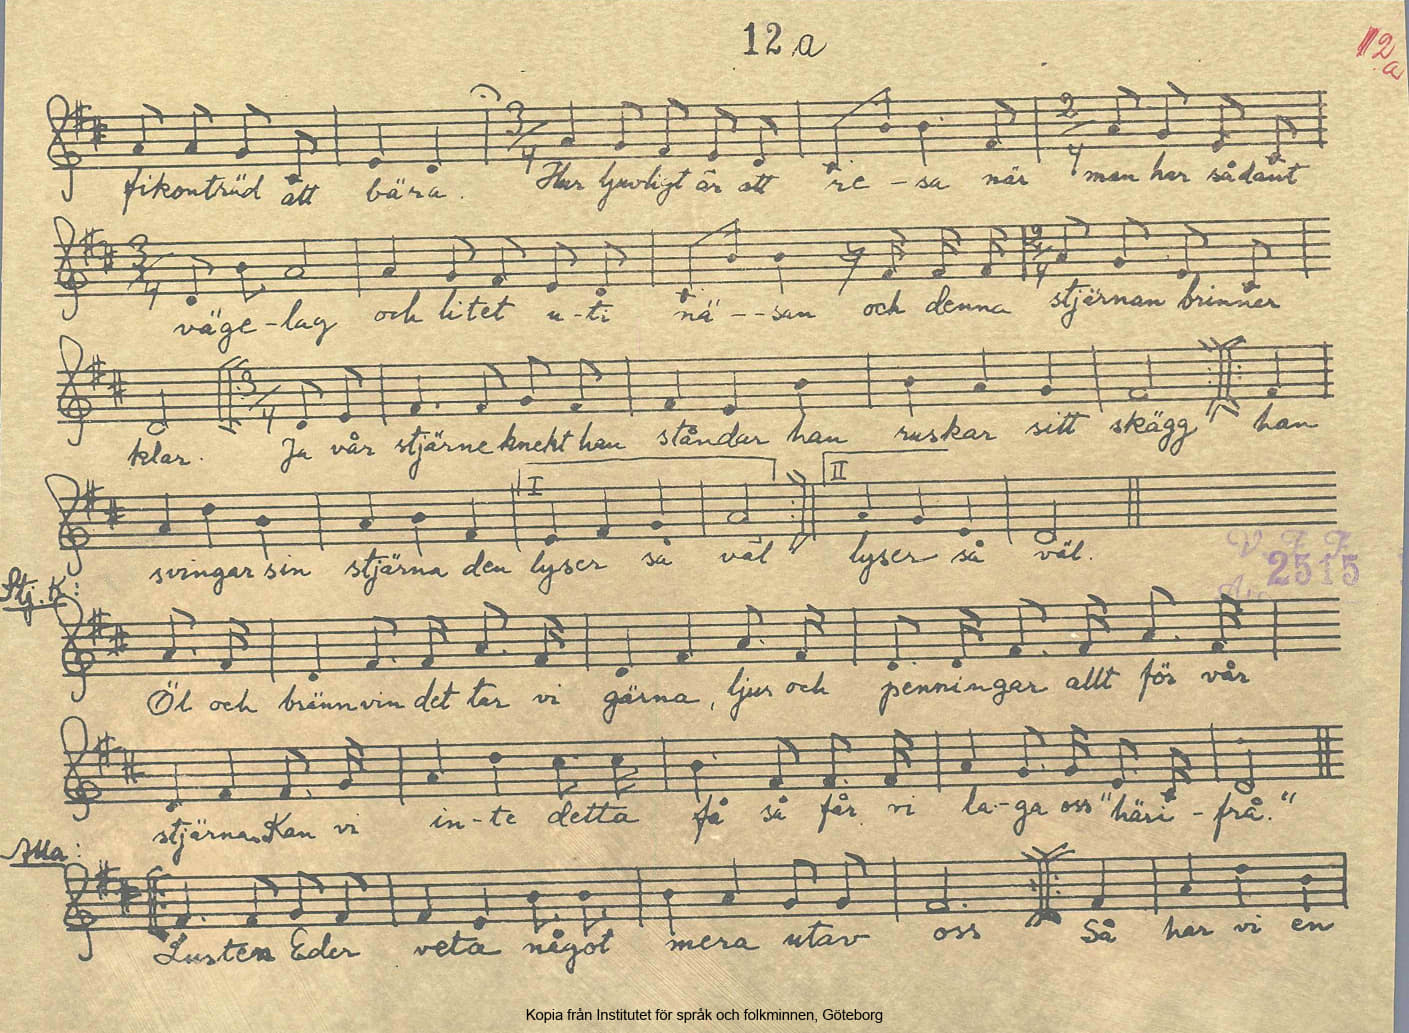 12 a
12 a
fikonträd att bära. Hur ljuvligt är att re - sa när man har sådant
väge - lag och litet u - ti nä - - san och denna stjärnan brinner
klar. Ja vår stjärne knekt han ståndar han ruskar sitt skägg han
I II
svingar sin stjärna den lyser så väl lyser så väl.
V. F. F.
2515
Stj. K:
Öl och brännvin det tar vi gärna, ljus och penningar allt för vår
stjärna. Kan vi in - te detta få så får vi la - ga oss "häri - frå."
Alla:
Lusten Eder veta något mera utav oss Så har vi en
Kopia från Institutet för språk och folkminnen, Göteborg